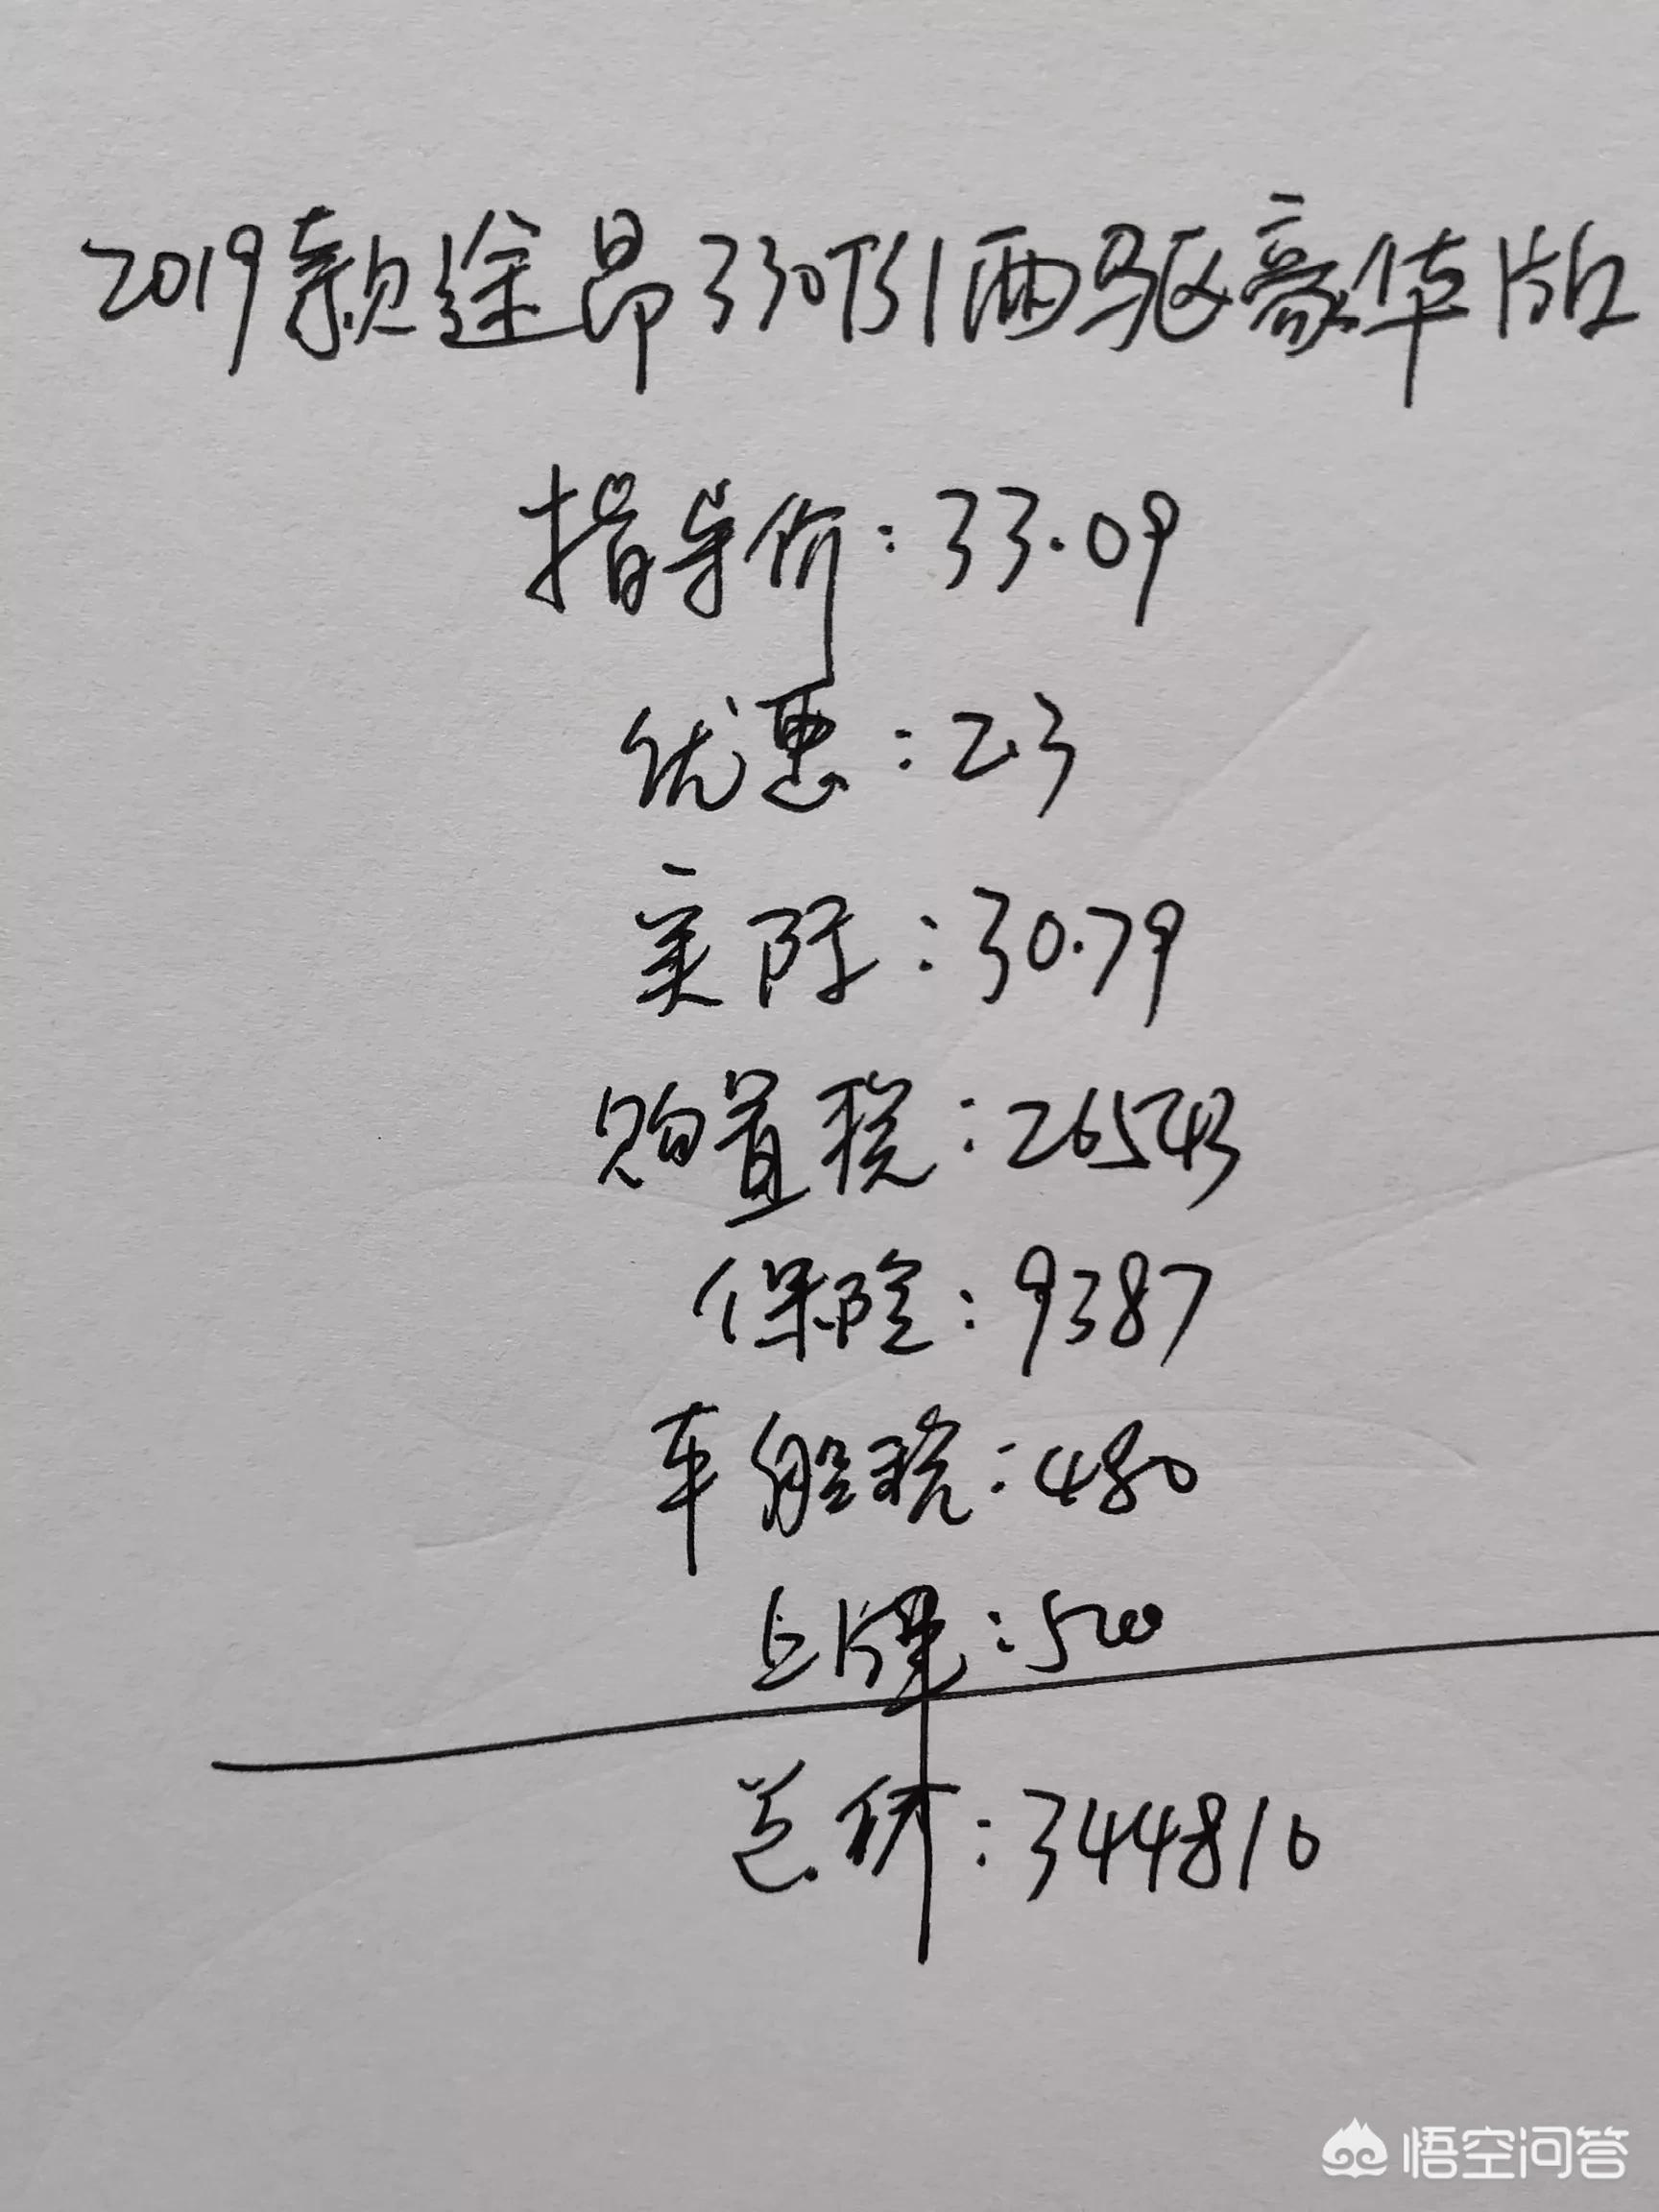 2019款途昂330TSI两驱豪华版
指导价:33.09
优惠:2.3
实际:30.79
购置税:26543
保险:9387
车船税:480
上牌:500
总价:344810
悟空问答